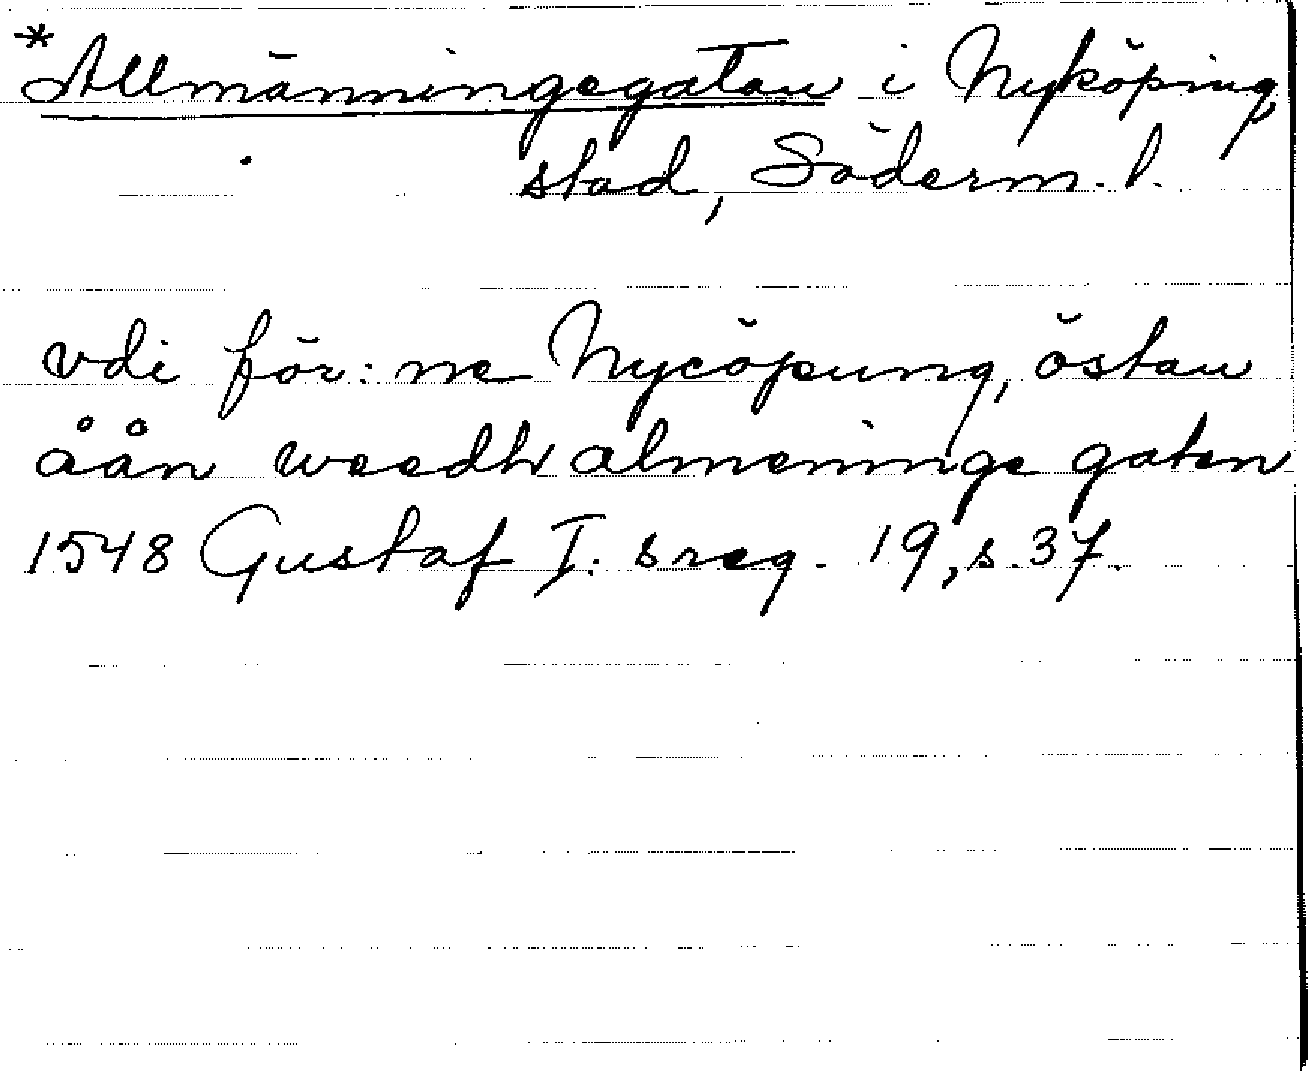 *Allmänningegatan i Nyköping
stad, Söderm. l.
vdi för:ne Nycöpung, östan
åån weedh almeninge gaten
1548 Gustaf I:s reg. 19, s. 37.